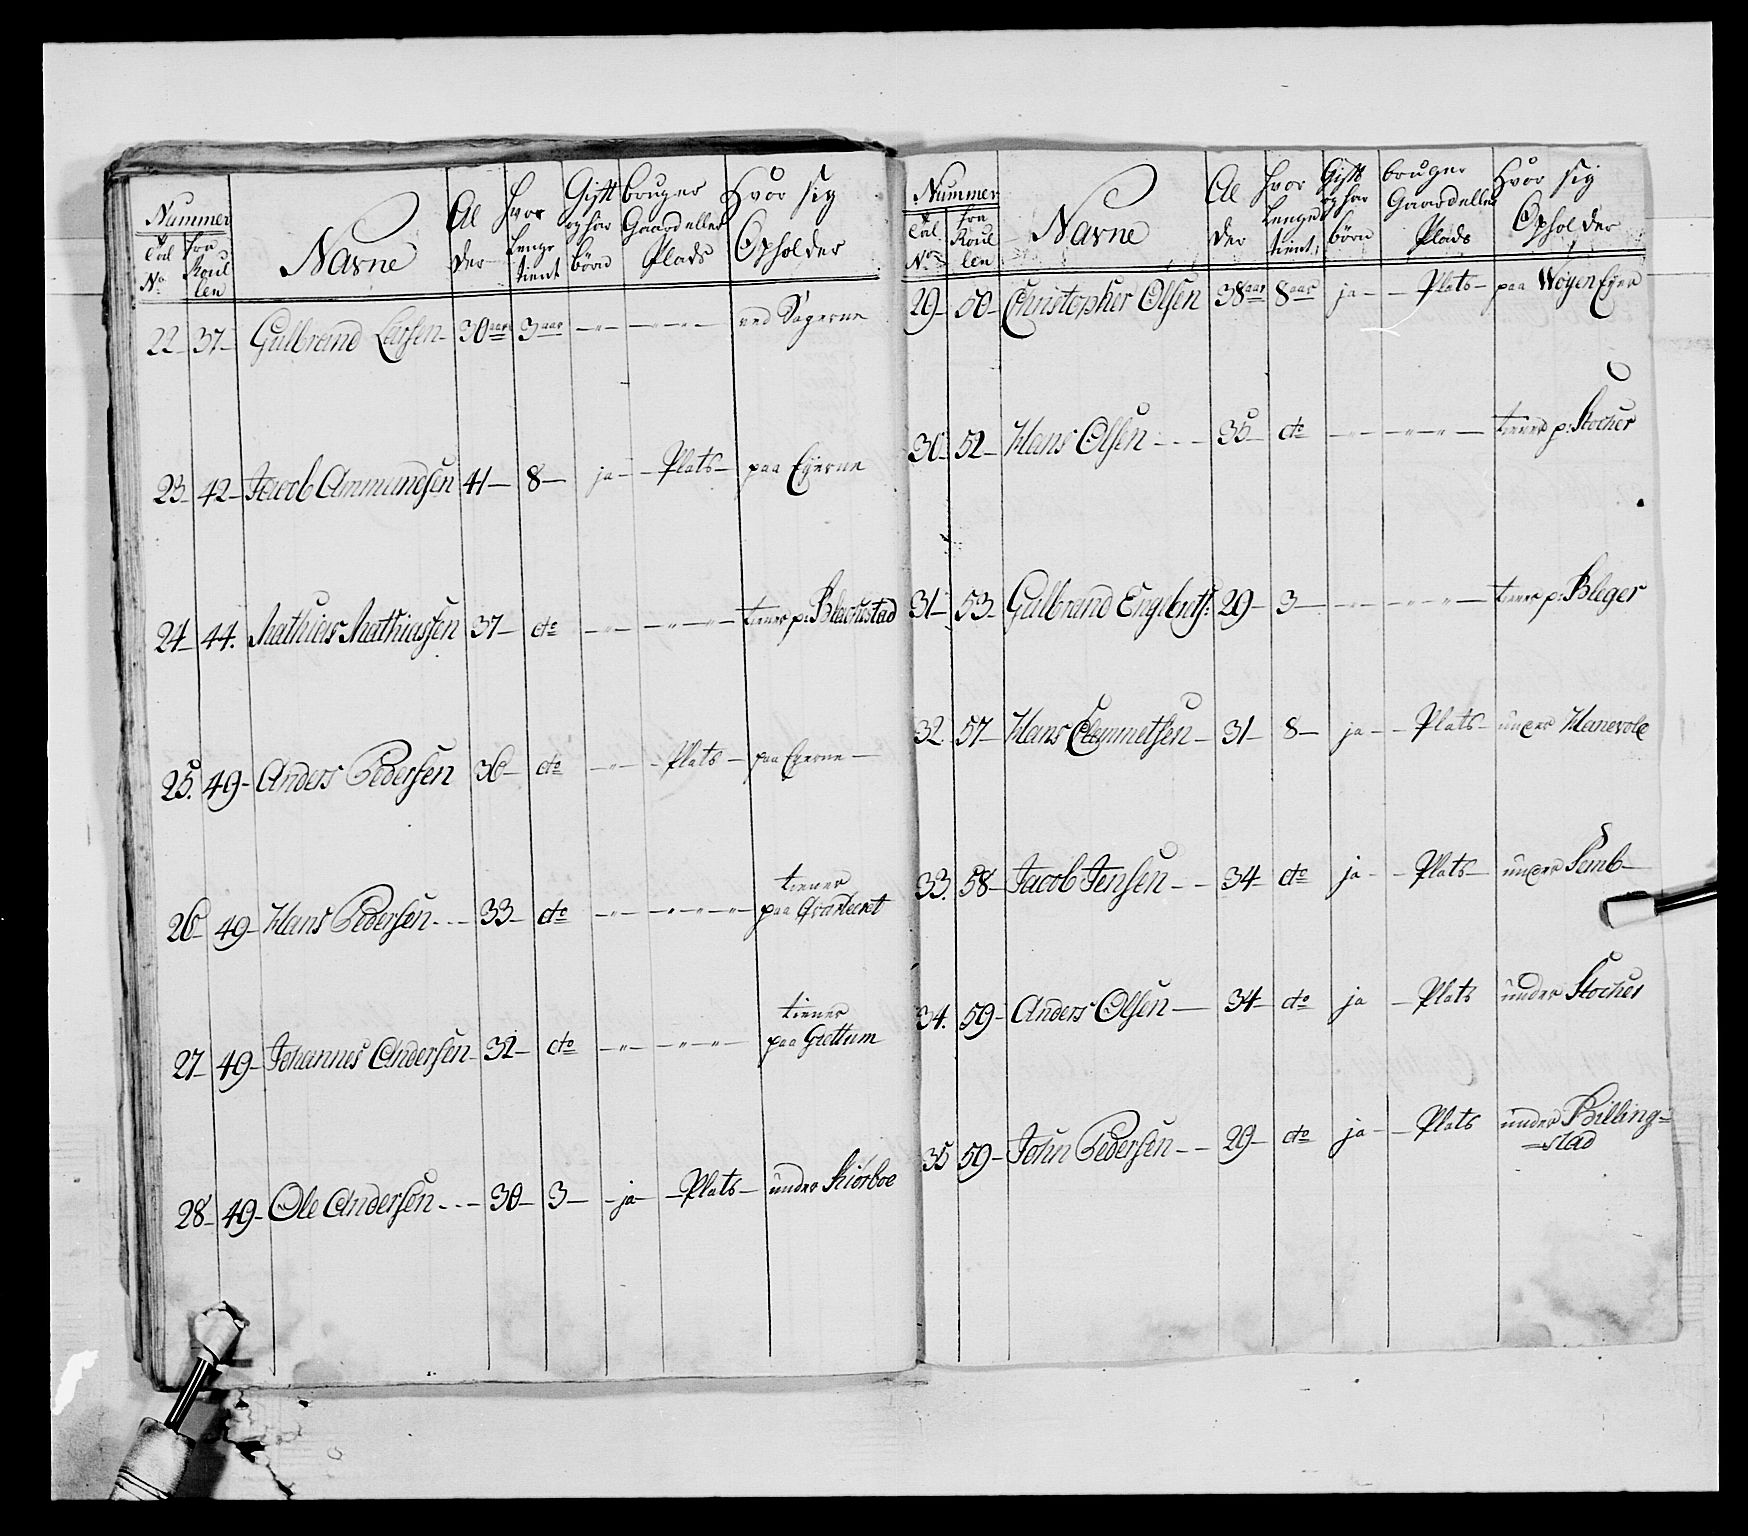 Nummer Navne Al der hvor lenge tient Gift og har børn bruger Gaard eller Plads Hvor sig Opholder
Tal No fra Roul len
22 37 Gulbrand Larsen 30 aar 3 aar -"- -"-"- ved Sagerne
23 42 Jacob Ammundsen 41 8 ja Plats paa Eyerne
24 44. Mathias Mathiassen 37 do -"- -"-"- tiener p:
25. 49 Anders Pedersen 36 do -"- Plats paa Eyerne
26 49 Hans Pedersen 33 do -"- -"-"- tiener
paa
27 49 Johannes Andersen 32 do -"- -"-"- tiener
paa Grettum
28 49 Ole Andersen 30 3 ja Plats under Kiørboe
Nummer Navne Al der hvor lenge tient: Gift og har børn bruger Gaard eller Plads Hvor sig Opholder
Tal No fra Roul len
29 50 Christopher Olsen 38 aar 8 aar ja Plats paa Wøyen Eyer
30 52 Hans Olsen 35 do -"- -"-"- tiener p: Stocher
31 53 Gulbrand Engebrets: 29 3 -"- -"-"- tiener p: Bleger
32 57 Hans Clemmetsen 31 8 ja Plats under Hanevole
33. 58 Jacob Jensen 34 do ja Plats under Semb
34. 59 Anders Olsen 34 do ja Plats under Stocher
35 59 John Pedersen 29 do ja Plats under Billing=
=stad